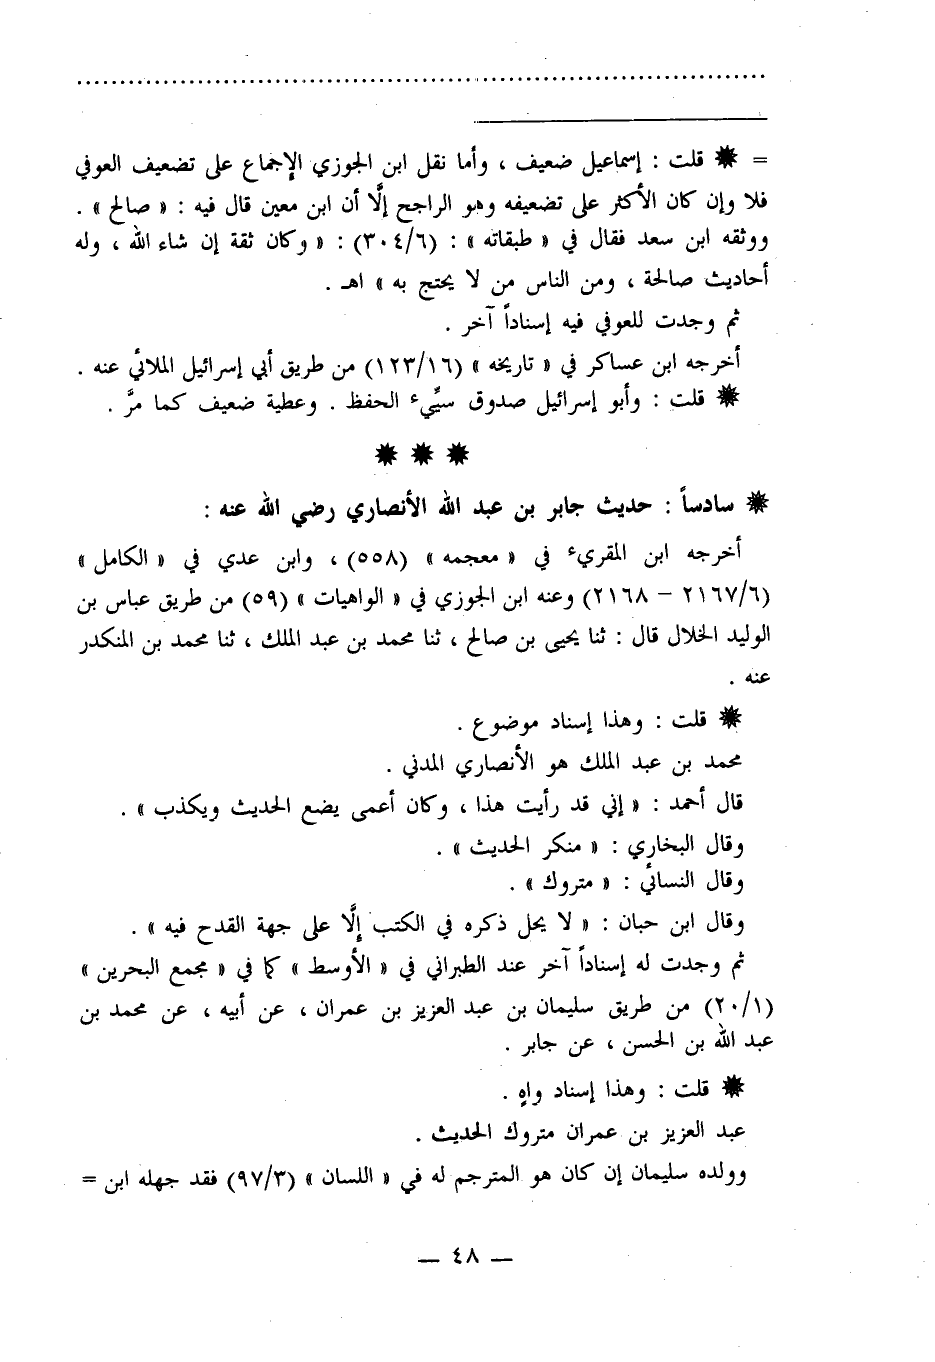 = ✸ قلت : إسماعيل ضعيف ، وأما نقل ابن الجوزي الإجماع على تضعيف العوفي
فلا وإن كان الأكثر على تضعيفه وهو الراجح إلَّا أن ابن معين قال فيه : « صالح » .
ووثقه ابن سعد فقال في « طبقاته » : (٣٠٤/٦) : « وكان ثقة إن شاء الله ، وله
أحاديث صالحة ، ومن الناس من لا يحتج به » اهـ .
ثم وجدت للعوفي فيه إسناداً آخر .
أخرجه ابن عساكر في « تاريخه » (١٢٣/١٦) من طريق أبي إسرائيل الملائي عنه .
✸ قلت : وأبو إسرائيل صدوق سيِّيء الحفظ . وعطية ضعيف كما مرَّ .
✸ ✸ ✸
✸ سادساً : حديث جابر بن عبد الله الأنصاري رضي الله عنه :
أخرجه ابن المقريء في « معجمه » (٥٥٨) ، وابن عدي في « الكامل »
(٢١٦٧/٦ – ٢١٦٨) وعنه ابن الجوزي في « الواهيات » (٥٩) من طريق عباس بن
الوليد الخلال قال : ثنا يحيى بن صالح ، ثنا محمد بن عبد الملك ، ثنا محمد بن المنكدر
عنه .
✸ قلت : وهذا إسناد موضوع .
محمد بن عبد الملك هو الأنصاري المدني .
قال أحمد : « إني قد رأيت هذا ، وكان أعمى يضع الحديث ويكذب » .
وقال البخاري : « منكر الحديث » .
وقال النسائي : « متروك » .
وقال ابن حبان : « لا يحل ذكره في الكتب إلَّا على جهة القدح فيه » .
ثم وجدت له إسناداً آخر عند الطبراني في « الأوسط » كما في « مجمع البحرين »
(٢٠/١) من طريق سليمان بن عبد العزيز بن عمران ، عن أبيه ، عن محمد بن
عبد الله بن الحسن ، عن جابر .
✸ قلت : وهذا إسناد واهٍ .
عبد العزيز بن عمران متروك الحديث .
وولده سليمان إن كان هو المترجم له في « اللسان » (٩٧/٣) فقد جهله ابن =
— ٤٨ —